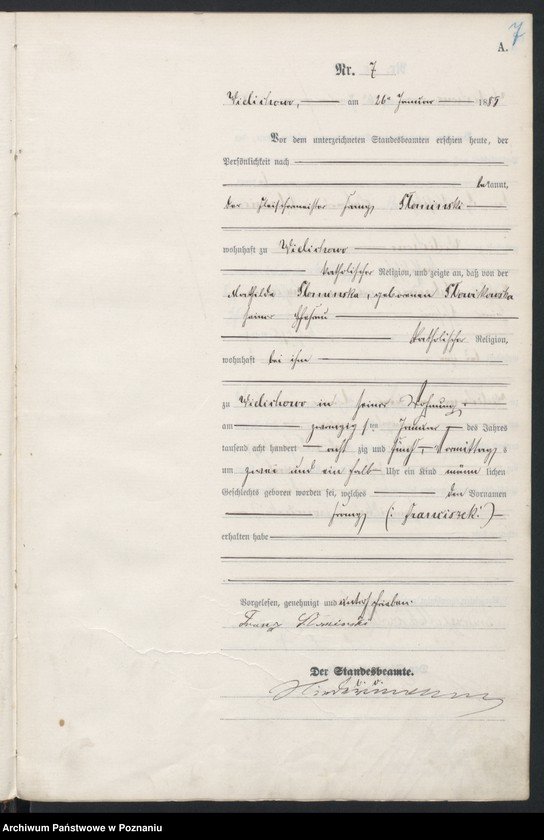 7
A.
Nr. 7
Wielichowo, am 26n Januar 1885
Vor dem unterzeichneten Standesbeamten erschien heute, der
Persönlichkeit nach
bekannt,
der Fleischermeister Franz Słominski
wohnhaft zu Wielichowo
katholischer Religion, und zeigte an, daß von der
Mathilde Słominska, geborenen
seiner Ehefrau
katholischer Religion,
wohnhaft bei ihm
zu Wielichowo in seiner Wohnung
am zwanzigsten Januar des Jahres
tausend acht hundert acht zig und fünf, Vormittags
um zwei und ein halb Uhr ein Kind männ lichen
Geschlechts geboren worden sei, welches den Vornamen
Franz (: Franciszek :)
erhalten habe
Vorgelesen, genehmigt und unterschrieben.
Franz Słominski
Der Standesbeamte.
Archiwum Państwowe w Poznaniu